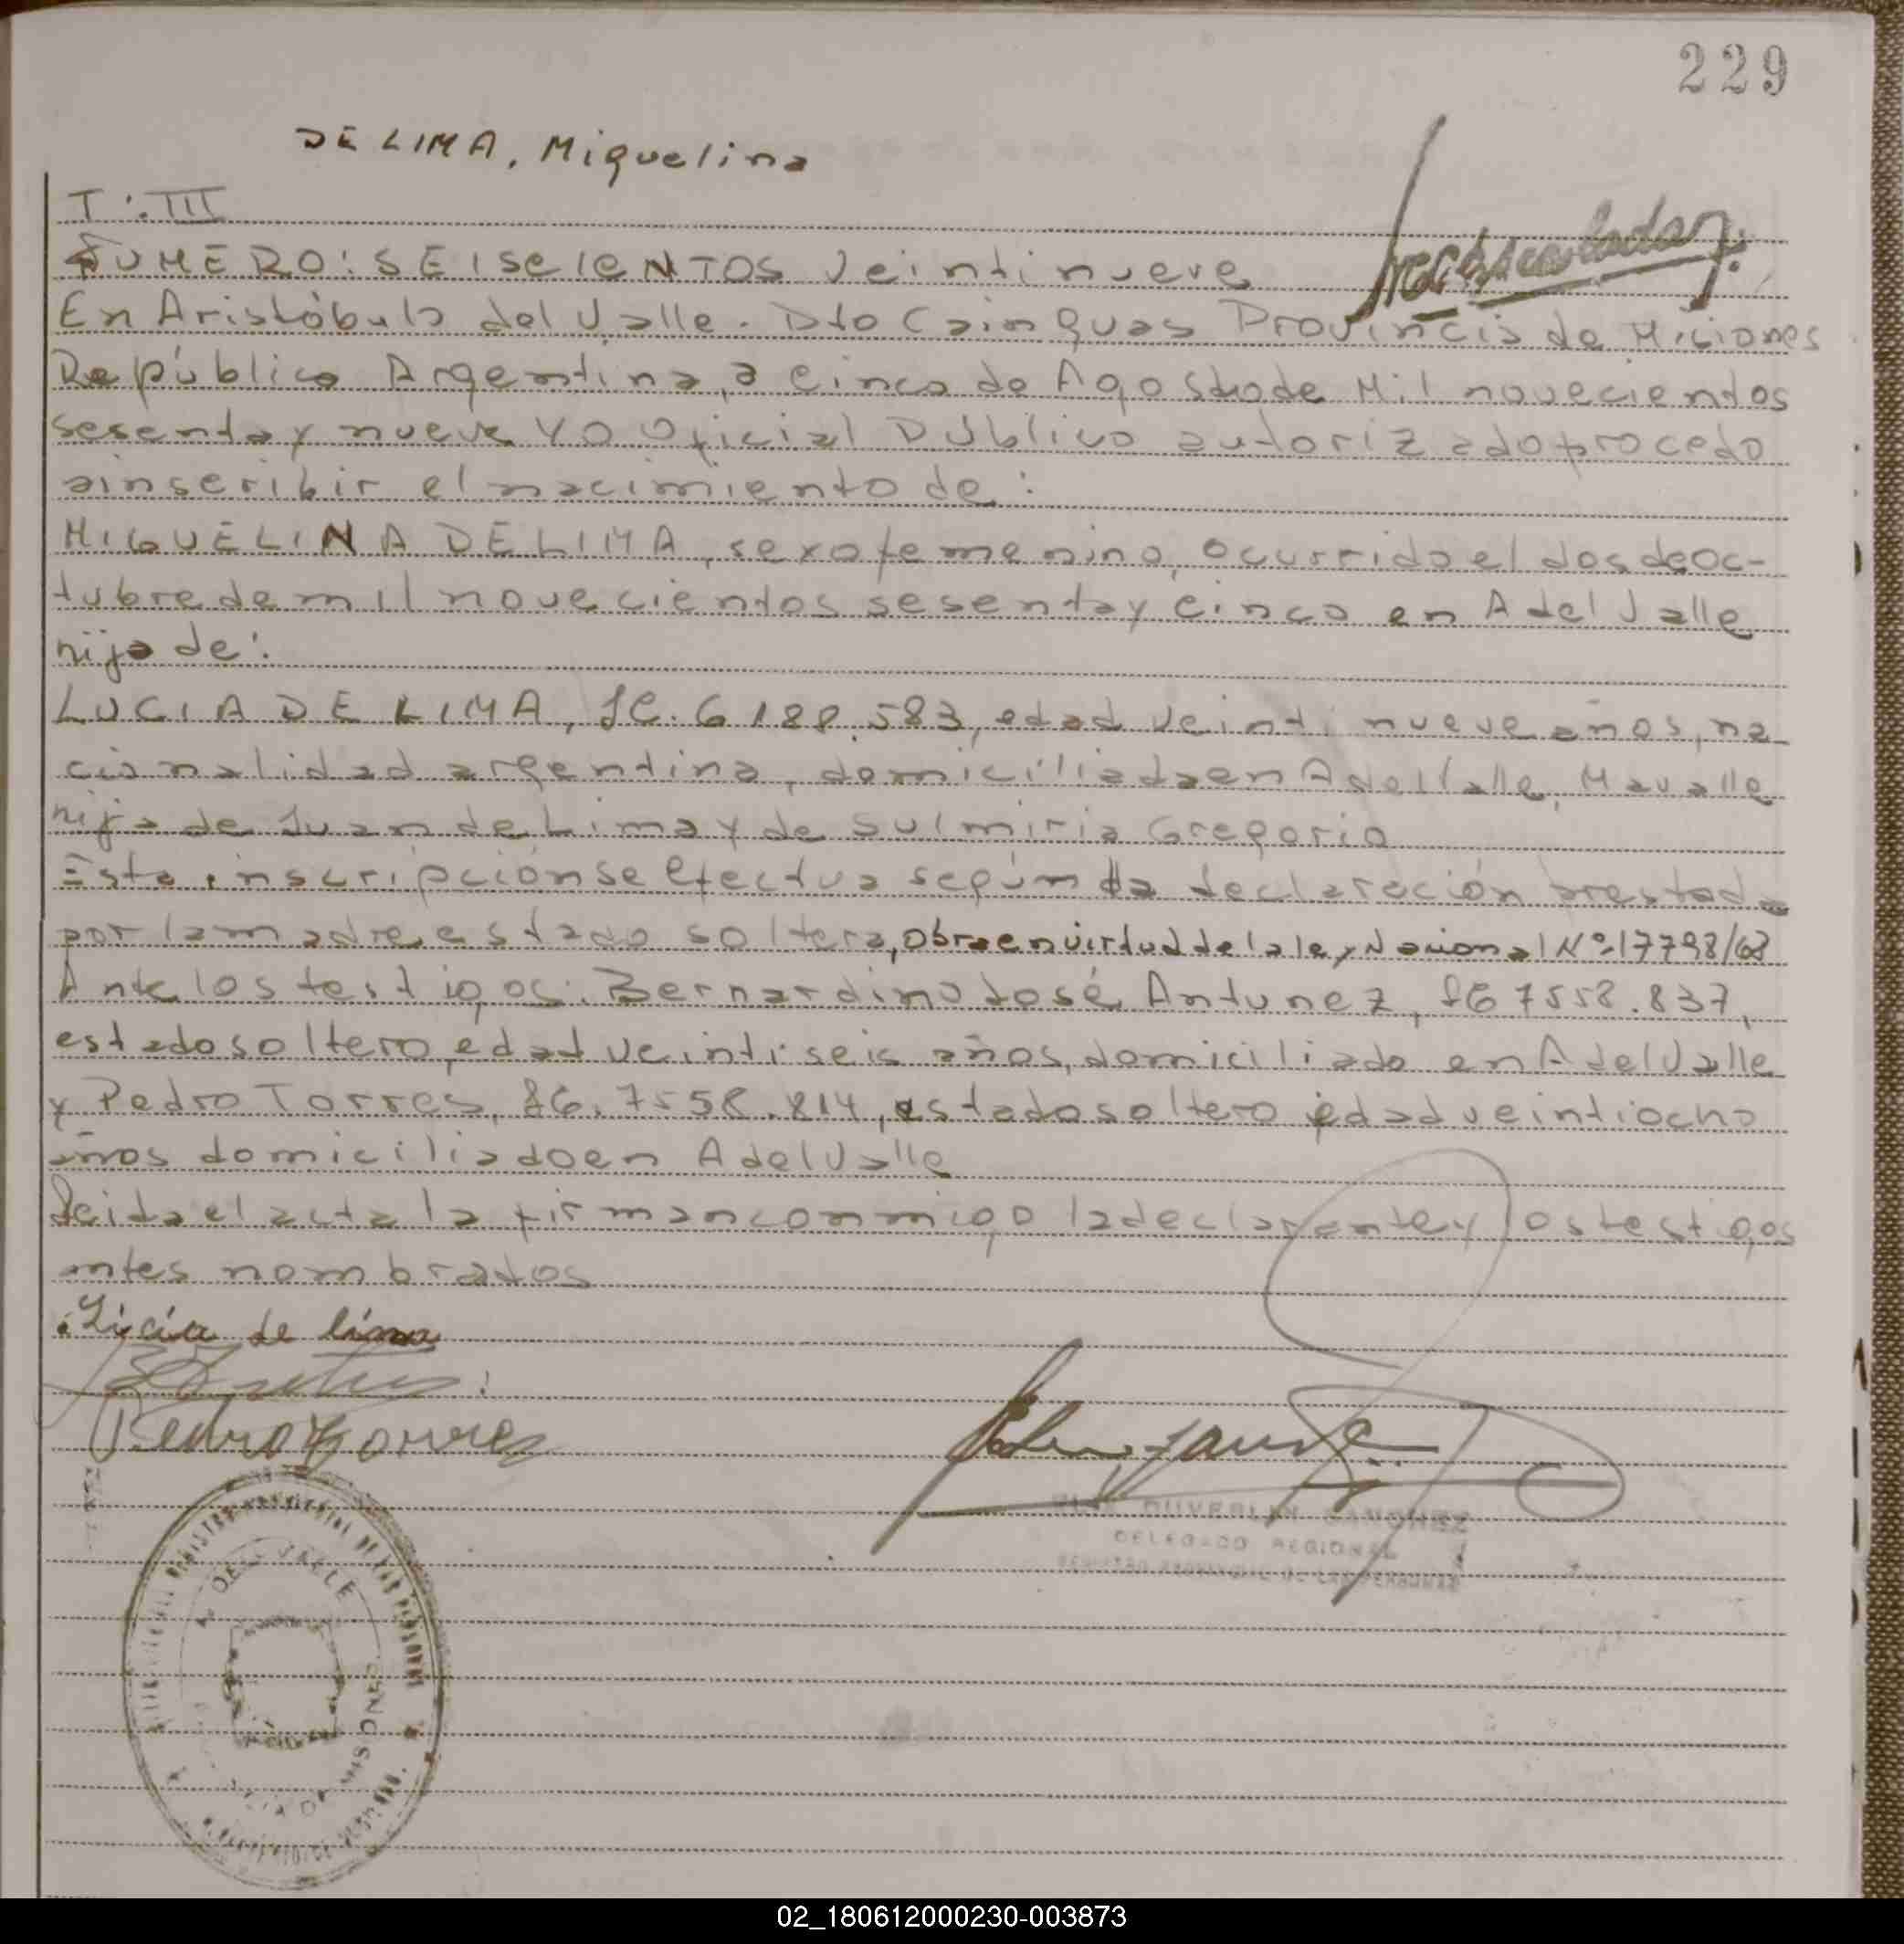 229
DE LIMA, Miguelina
T: III
NUMERO: SEISCIENTOS Veintinueve
En Aristóbulo del Valle. Dto Cainguas Provincia de Miciones
República Argentina, a cinco de Agosto de Mil novecientos
sesenta y nueve Yo Oficial Público autorizado procedo
a inscribir el nacimiento de:
MIGUELINA DE LIMA, sexo femenino, ocurrido el dos de oc-
tubre de mil novecientos sesenta y cinco en A del Valle
hija de:
LUCIA DE LIMA, LC. 6188.583, edad veintinueve años, na-
cionalidad argentina, domiciliada en A del Valle,
hija de Juan de Lima y de Sulmiria Gregorio
Esta inscripción se efectua según la declaración prestada
por la madre, estado soltera, obra en virtud de la ley Nacional Nº 17798/68
Ante los testigos: Bernardino José Antunez, LE 7558.837,
estado soltero, edad veintiseis años, domiciliado en A del Valle
y Pedro Torres, LE. 7558.814, estado soltero edad veintiocho
años domiciliado en A del Valle
Leida el acta la firman conmigo la declarante y los testigos
antes nombrados
Lucía de lima
Pedro Torres
SANCHEZ
DELEGADO REGIONAL
REGISTRO PROVINCIAL DE LAS PERSONAS
REGISTRO PROVINCIAL DE LAS PERSONAS
A. DEL VALLE
MISIONES
02_180612000230-003873